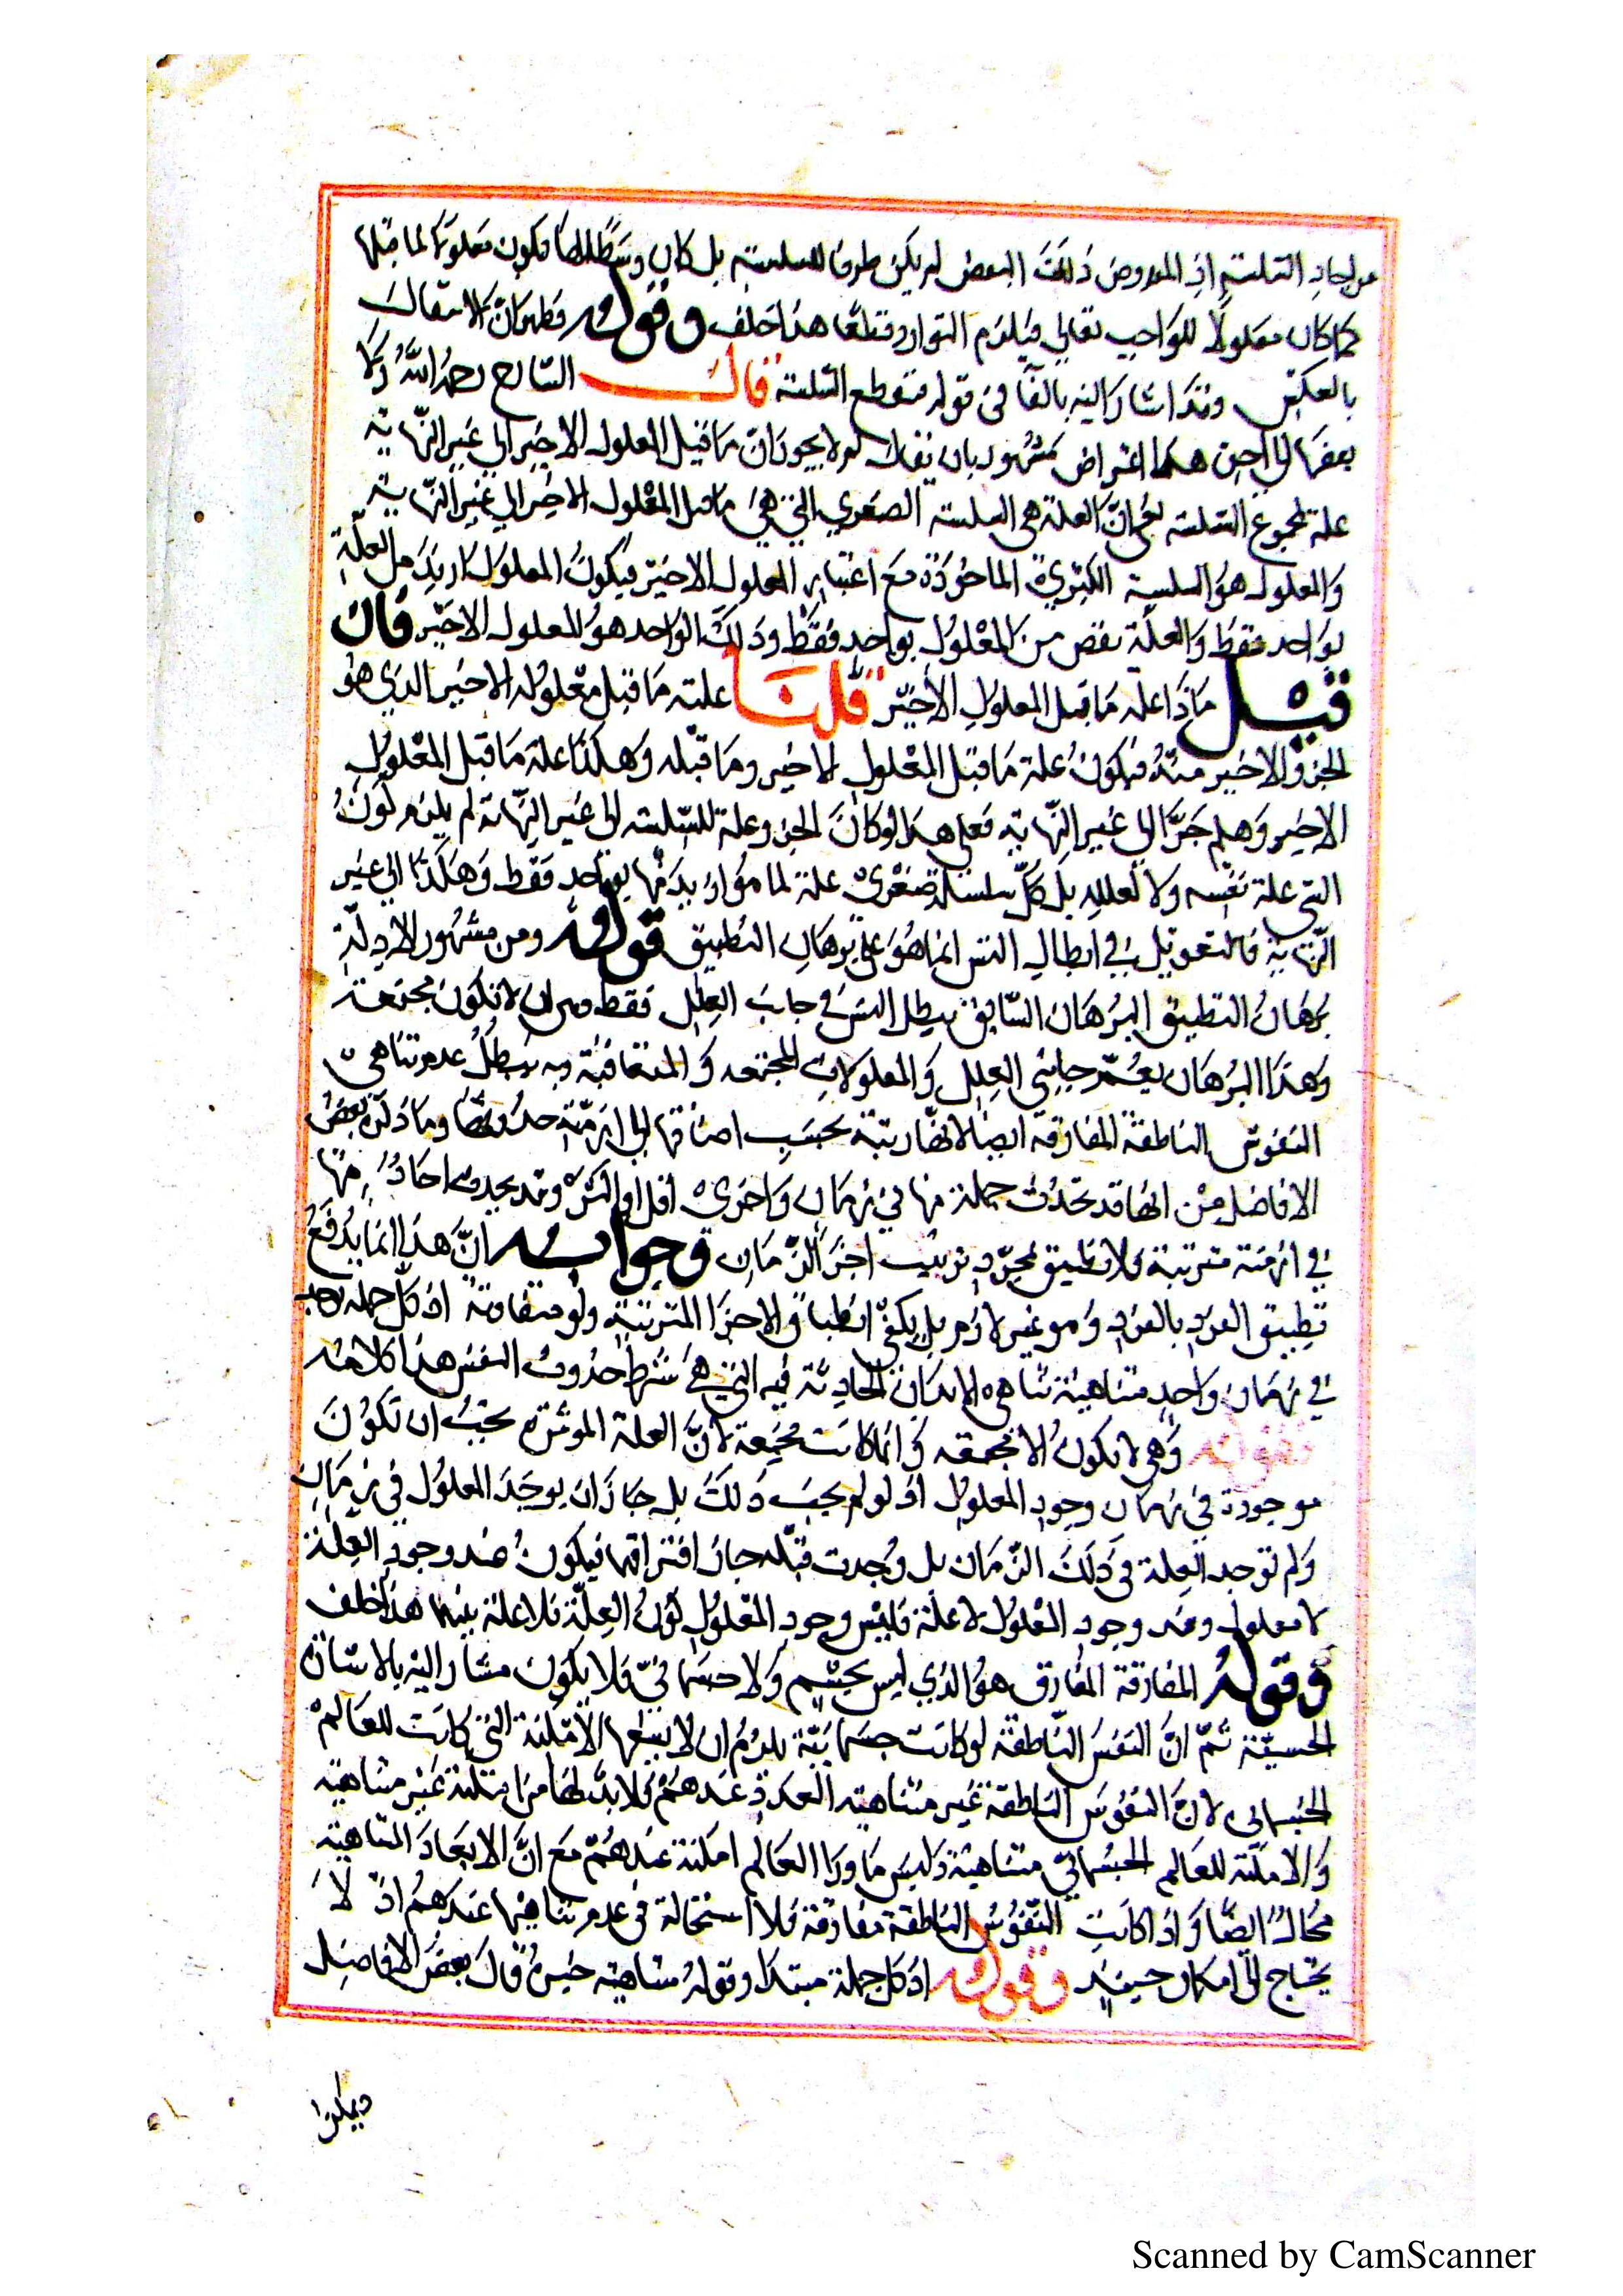 من احاد السلسلة اذ المفروض ذلك البعض لم يكن طرفا للسلسلة بل كان وسطا لها فيكون معلولا لما قبلها
كما كان معلولا للواجب تعالى فيلزم التوارد قطعا هذا خلف وقوله فظهر ان الامر
بالعكس وقد اشار اليه بالفا في قوله فتنقطع السلسلة قال الشارح رحمه الله
ههنا اعتراض مشهور بان يقال لم لا يجوز ان ما قبل المعلول الاخير الى غير النهاية
علة لمجموع السلسلة بمعنى ان العلة هي السلسلة الصغرى التي هي ما قبل المعلول الاخير الى غير النهاية
والمعلول هو السلسلة الكبرى الماخوذة مع اعتبار المعلول الاخير فيكون المعلول ازيد من العلة
بواحد فقط والعلة نقص من المعلول بواحد فقط وذلك الواحد هو المعلول الاخير فان
قيل ماذا علة ما قبل المعلول الاخير قلنا علته ما قبل معلوله الاخير الذي هو
الجزو الاخير منه فيكون علة ما قبل المعلول الاخير وما قبله وهكذا علة ما قبل المعلول
الاخير وهلم جرا الى غير النهاية فعلى هذا لو كان الجزو علة للسلسلة الى غير النهاية لم يلزم كون
الشي علة نفسه ولا لعلله بل كل سلسلة صغرى علة لما هو ازيد منها بواحد فقط وهكذا الى غير
النهاية فالتعويل في ابطال التس انما هو على برهان التطبيق قوله ومن مشهور الادلة
برهان التطبيق البرهان السابق يبطل التس في جانب العلل فقط بان لا تكون مجتمعة
وهذا البرهان يعم جانبي العلل والمعلولات المجتمعة والمتعاقبة وبه يبطل عدم تناهي
النفوس الناطقة المفارقة ايضا لانها مرتبة بحسب اضافتها الى ازمنة حدوثها وما ذكره بعض
الافاضل من انها قد تحدث جملة منها في زمان واخرى اقل او اكثر وقد يحدث احاد منها
في ازمنة مترتبة فلا تطبيق بمجرد ترتيب اجزا الزمان وجوابه ان هذا انما يدفع
تطبيق الفرد بالفرد وهو غير لازم بل يكفي انطباق الاجزا المترتبة ولو متفاوتة اذ كل جملة توجد
في زمان واحد متناهية تناهي الابدان الحادثة فيه التي هي شرط حدوث النفس هذا كلامه
قوله وهي لا تكون الا مجتمعة وانما كانت مجتمعة لان العلة الموثرة يجب ان تكون
موجودة في زمان وجود المعلول اذ لو لم يجب ذلك بل جاز ان يوجد المعلول في زمان
ولم توجد العلة في ذلك الزمان بل وجدت قبله جاز افتراقهما فيكون عند وجود العلة
لا معلول وعند وجود المعلول لا علة فليس وجود المعلول لوجود العلة فلا علية بينهما هذا خلف
وقوله المفارقة المفارق هو الذي ليس بجسم ولا جسماني فلا يكون مشارا اليه بالاشارة
الحسية ثم ان النفس الناطقة لو كانت جسمانية يلزم ان لا يسعها الامكنة التي كانت للعالم
الجسماني لان النفوس الناطقة غير متناهية العدد عندهم فلا بد لها من امكنة غير متناهية
والامكنة للعالم الجسماني متناهية وليس ما ورا العالم امكنة عندهم مع ان الابعاد المتناهية
محال ايضا واذا كانت النفوس الناطقة مفارقة فلا استحالة في عدم تناهيها عندهم اذ لا
يحتاج الى امكان حينئذ وقوله اذ كل جملة مبتدا وقوله متناهية خبره قال بعض الافاضل
ويمكن
Scanned by CamScanner